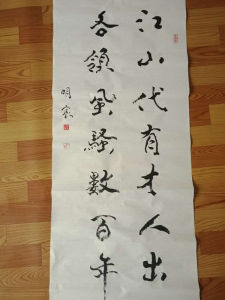 江山代有才人出
各領風騷數百年